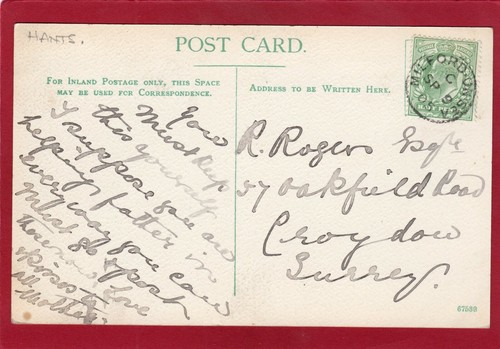 HANTS.
POST CARD.
FOR INLAND POSTAGE ONLY, THIS SPACE
MAY BE USED FOR CORRESPONDENCE.
ADDRESS TO BE WRITTEN HERE.
MILFORD ON SEA
C
SP
You
Must keep
this yourself
I suppose you are
helping father in
everyway you can
Must go & post
these now love
from
Mother
R. Rogers Esqre
57 Oakfield Road
Croydon
Surrey.
67532